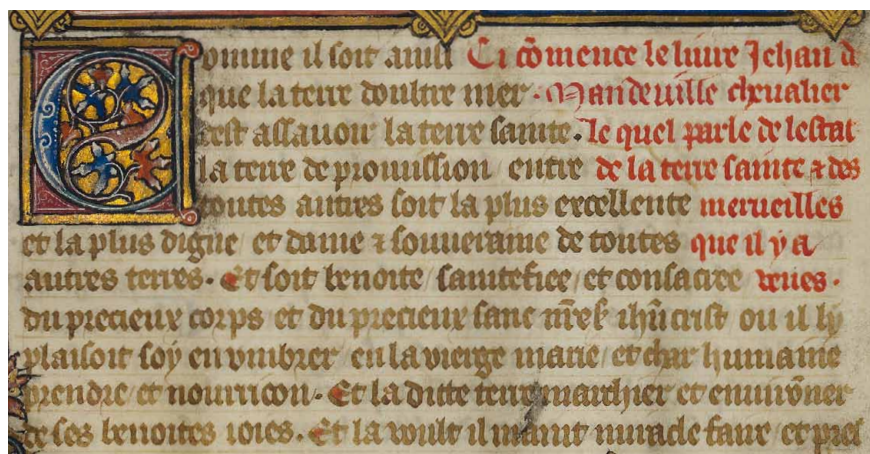 Comme il soit ainsi Ci cōmence le liure Jehan d
que la terre doultre mer. Mandeuille cheualier
cest assauoir la terre sainte. le quel parle de lestat
la terre de promission entre de la terre sainte ⁊ des
toutes autres soit la plus excellente merueilles
et la plus digne et dame ⁊ souueraine de toutes que il y a
autres terres. Et soit benoite saintefiee et consacree veues.
du precieux corps et du precieux sanc ihūcrist ou il ly
plaisoit soy en vmbrer en la vierge marie et char humaine
prendre et nourricon. Et la ditte terre marchier et enuirōner
de ses benoites Et la voult il maint miracle faire et